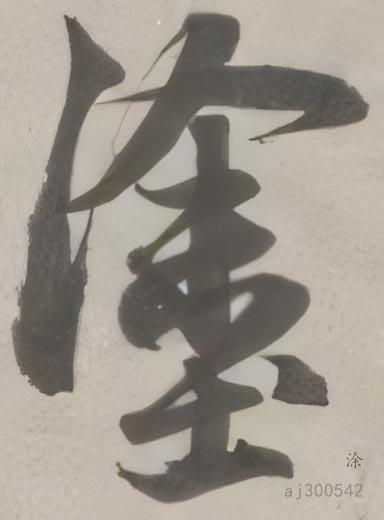 塗
涂
aj300542